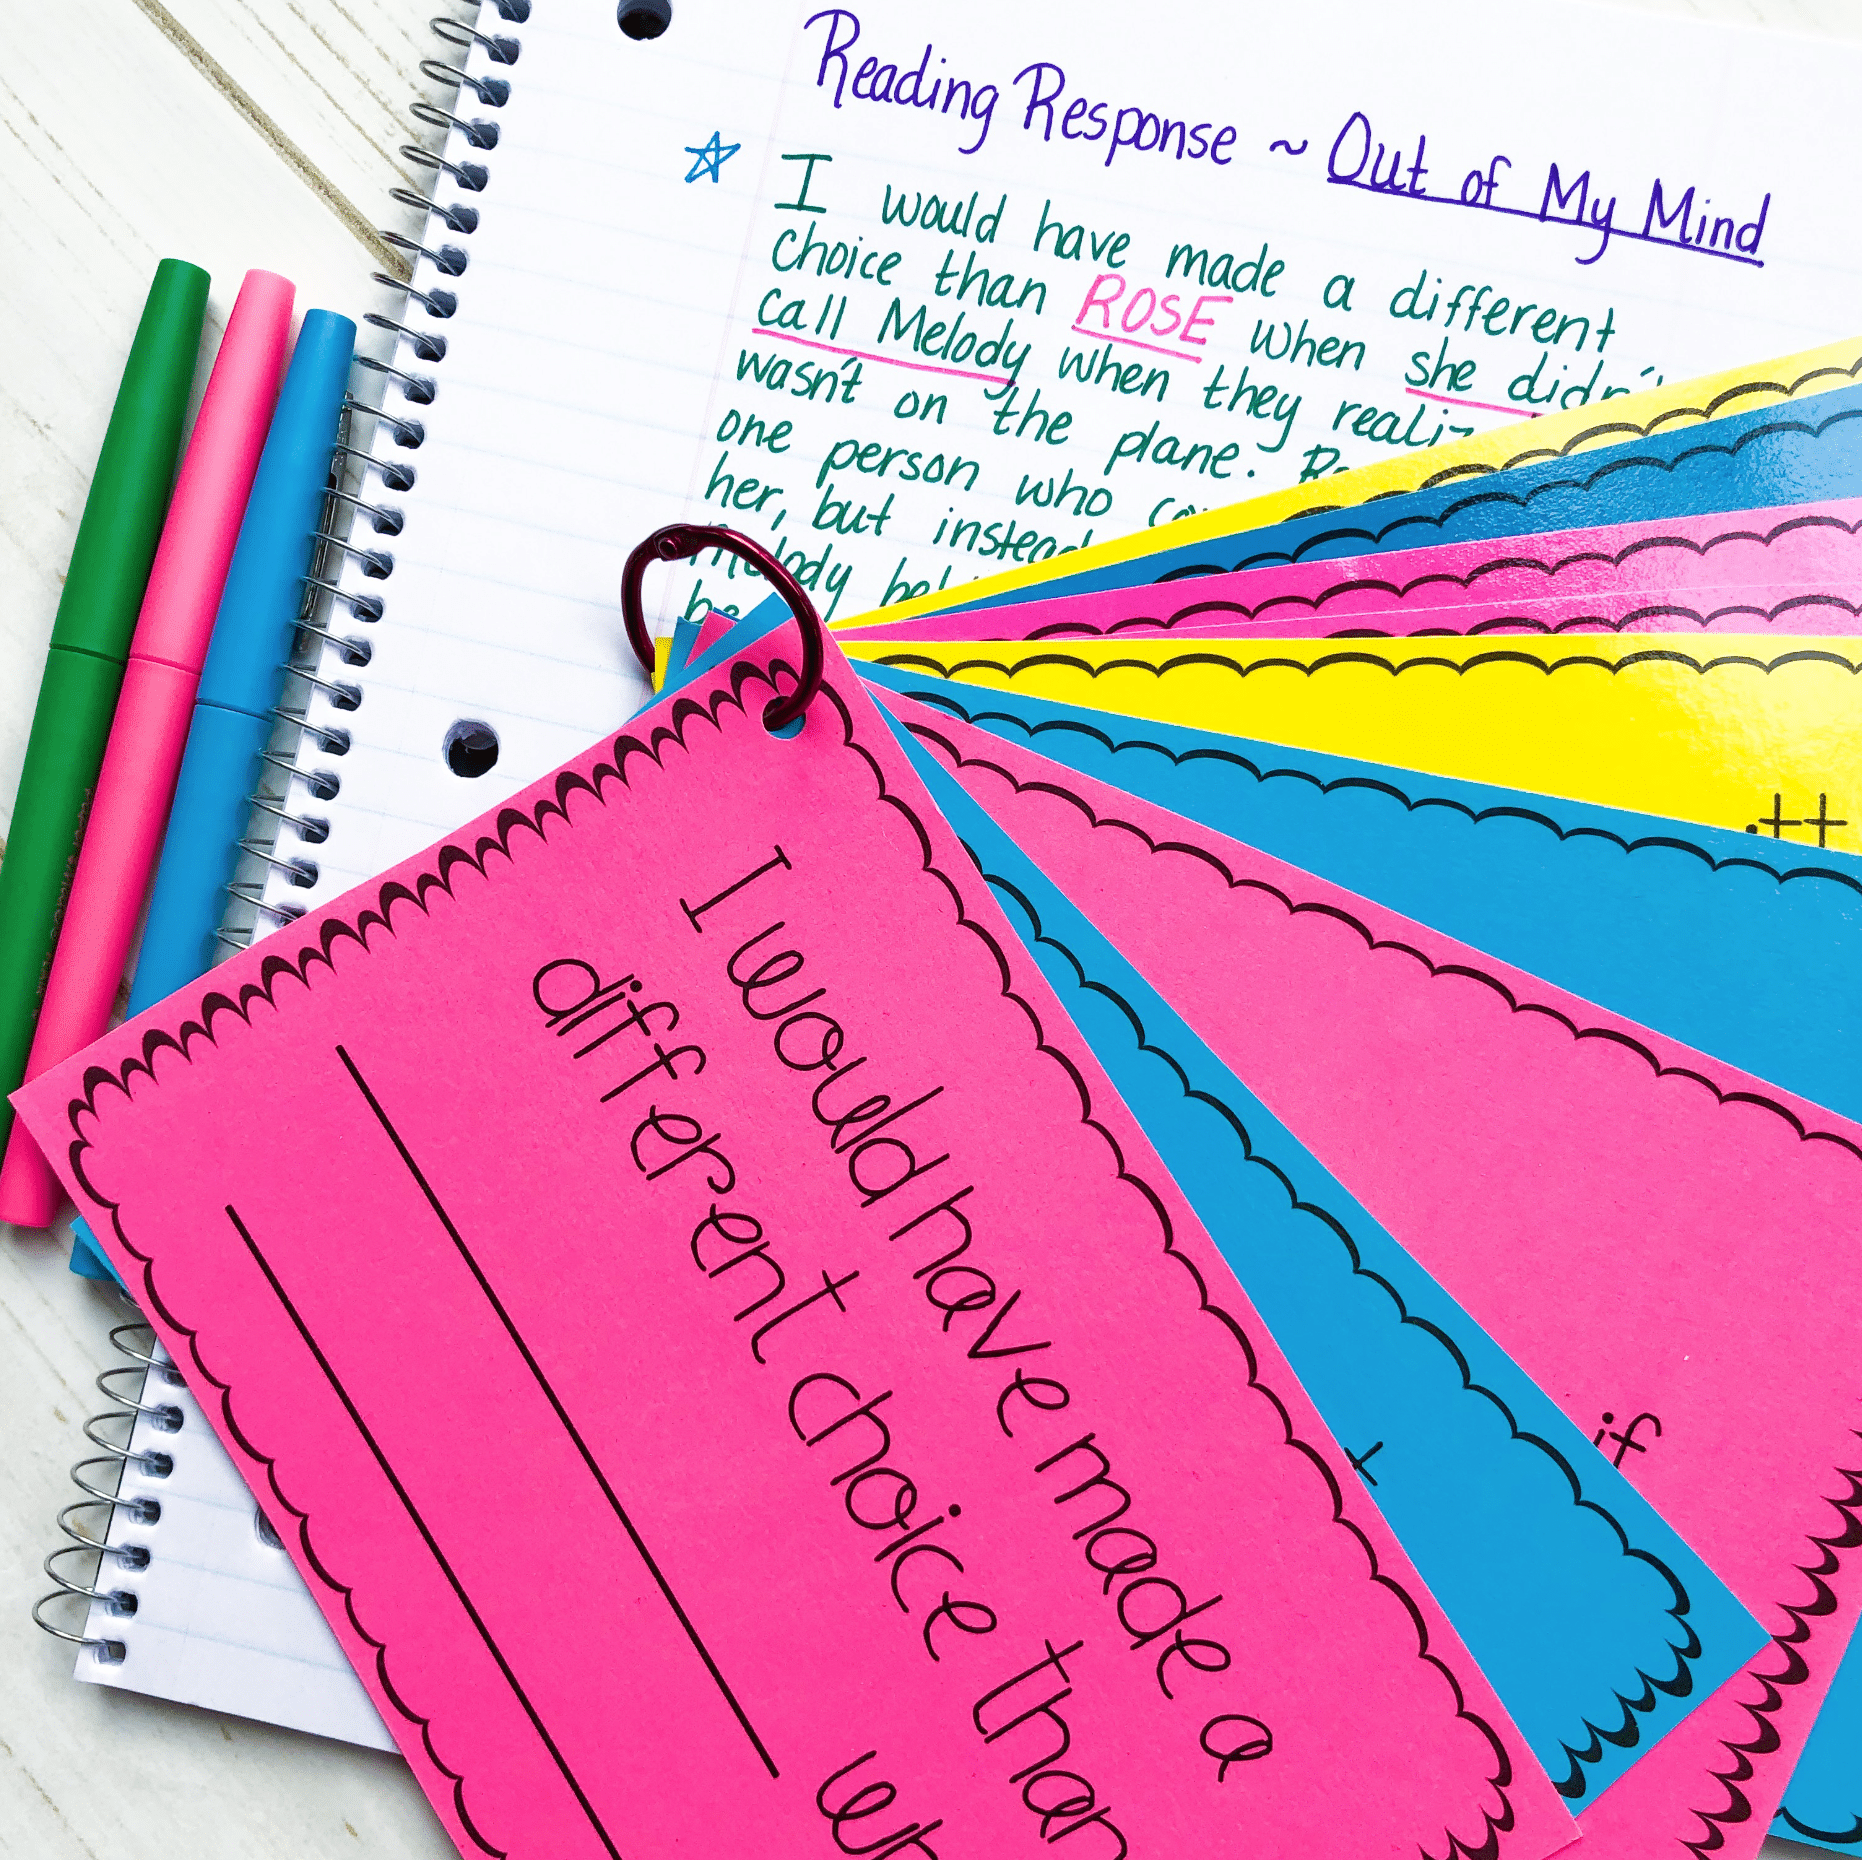 Reading Response ~ Out of My Mind
I would have made a different
choice than ROSE when she didn't
call Melody when they
wasn't on the plane.
one person who
her, but instead
Melody
I would have made a
different choice than
if